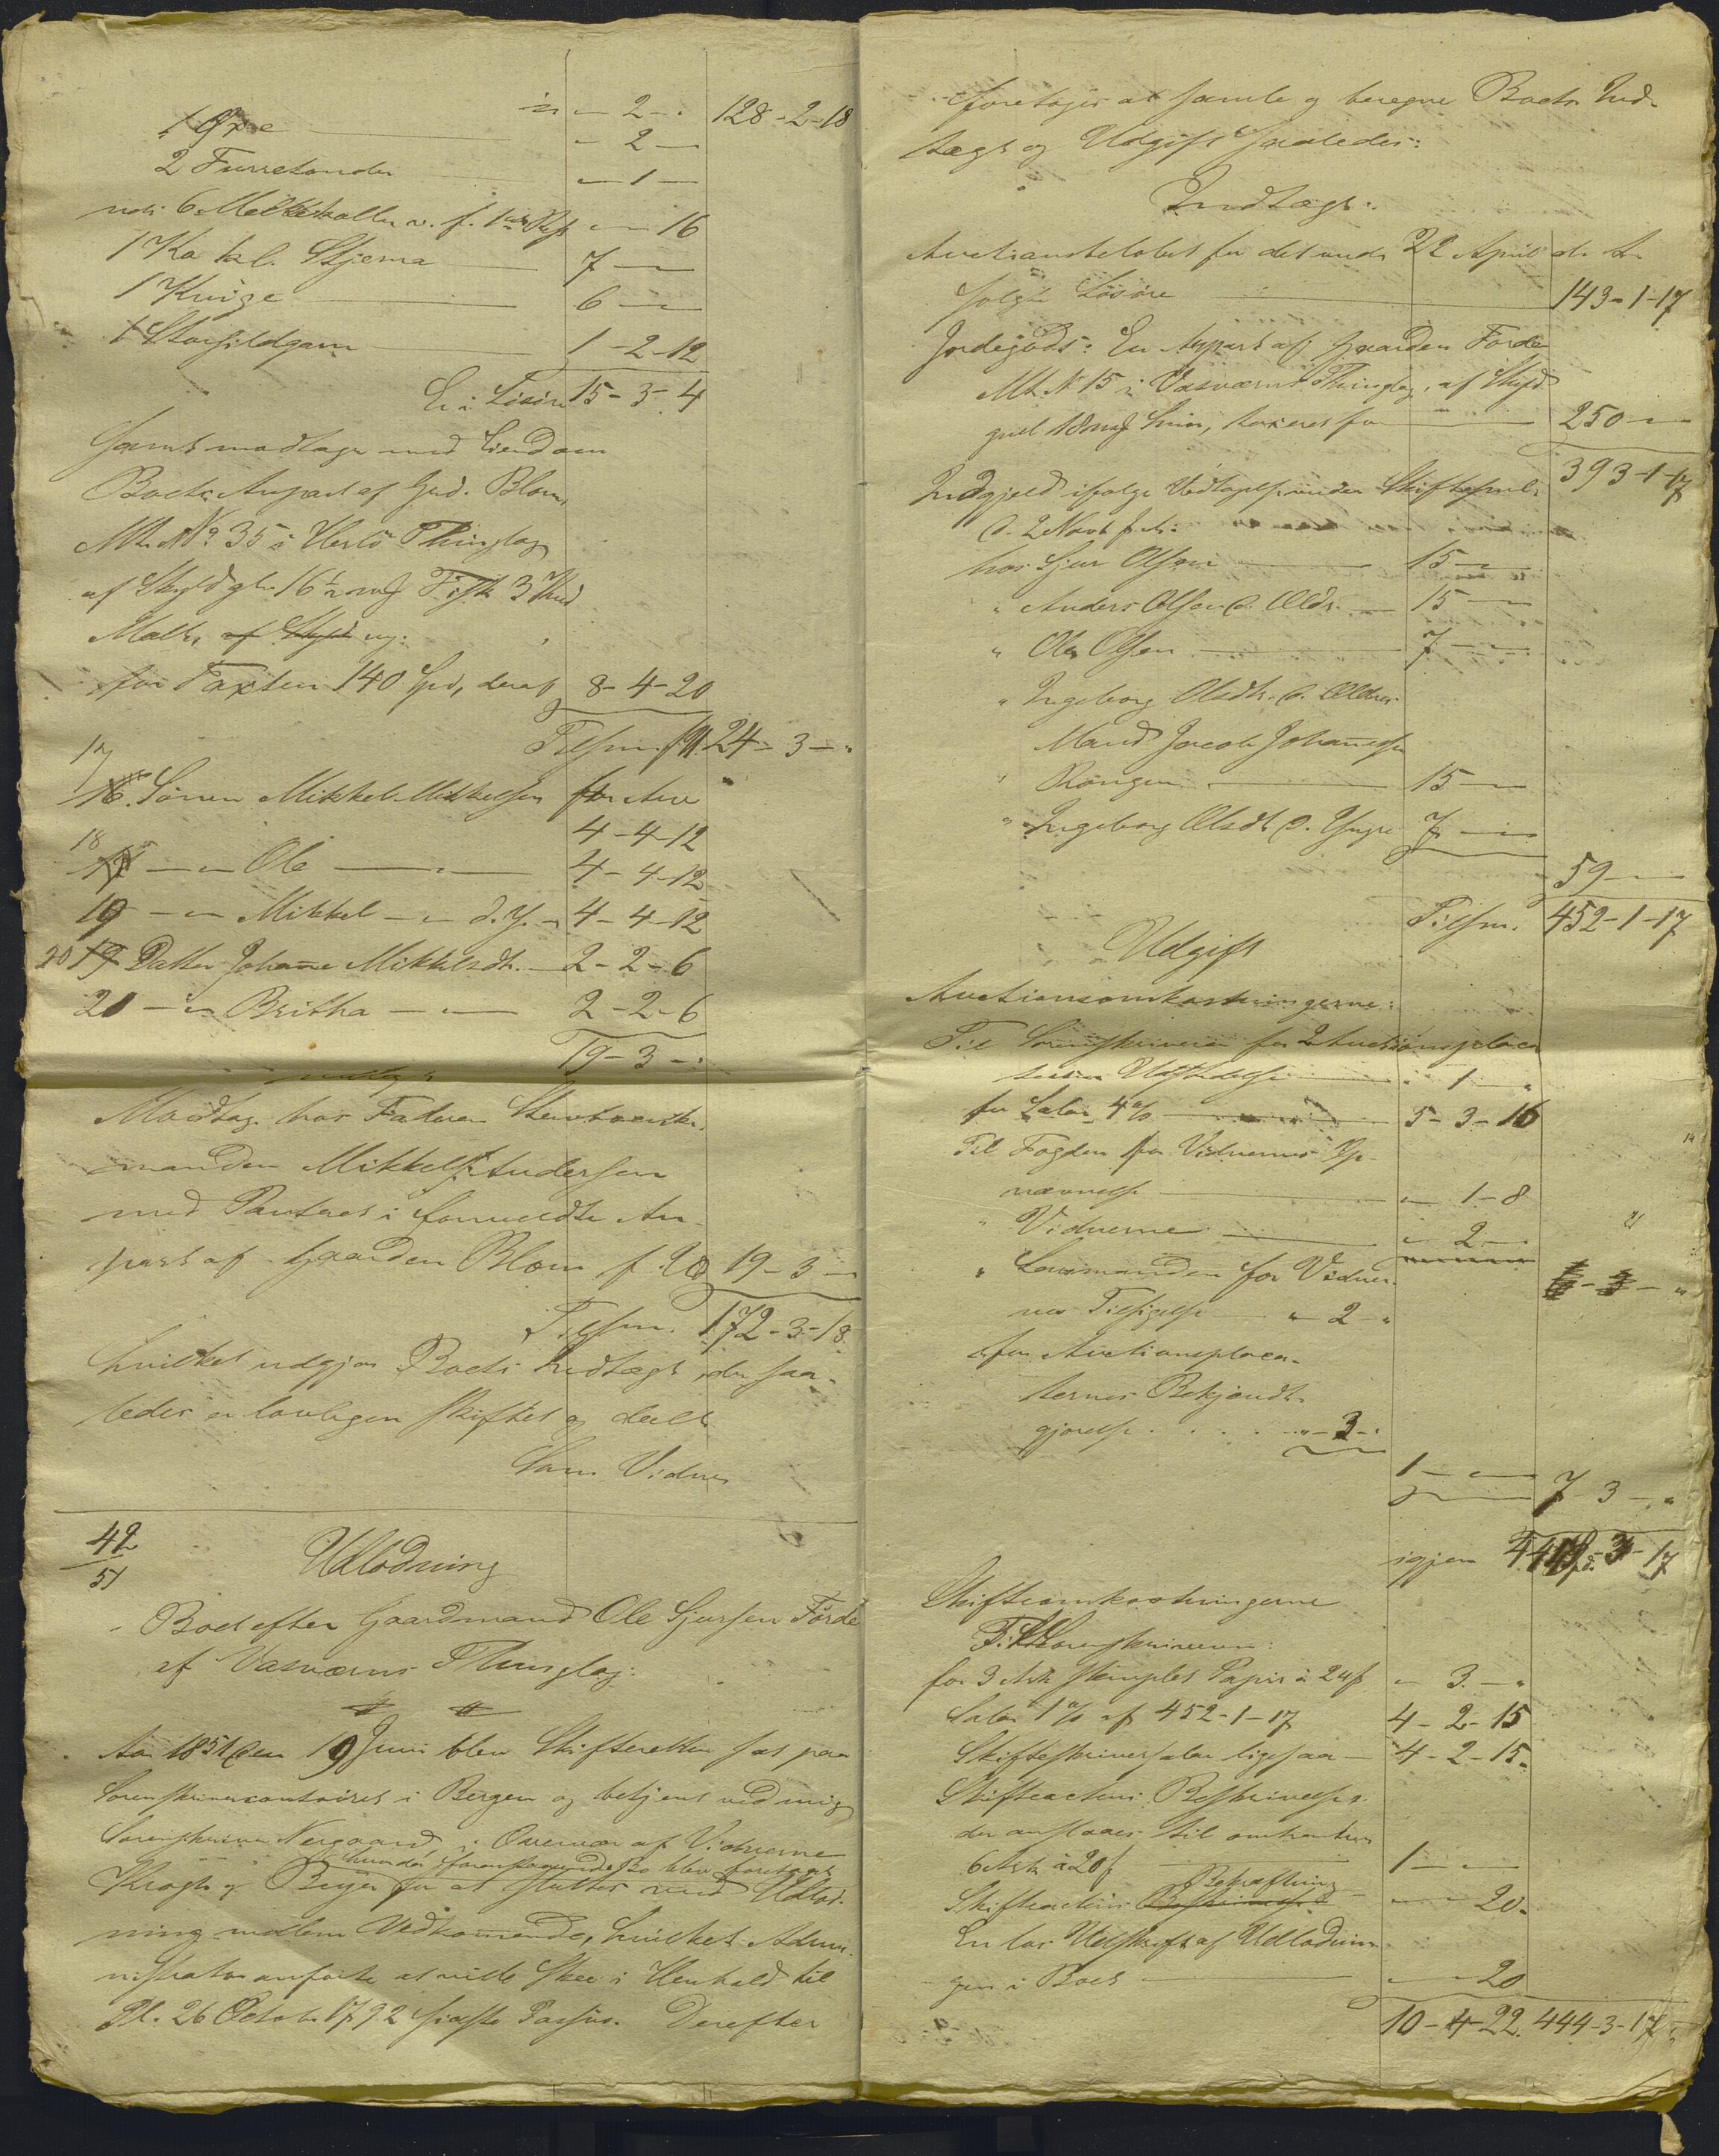 1 Øxe " - 2 - " 128-2-18
2 Furretønder - 2 -
- 1 -
6 Melkekoller 16
1 Ko kal. Stjerna 7 -
1 Kvige 6 -
1 Storsildgarn 1-2-12
Er i Løsøre 15-3-4
samt modtage med Eiendom
Boets Anpart af Grd. Blom,
Mt. No. 35 i Herlø Thinglag
af Skyld gl. 16½ mk Fisk 3 Knd
Malt, af Skyld ny:
for Taxten 140 Spd, deraf 8-4-20
Tilsm. 24-3-"
17
16. Sønnen Mikkel Mikkelsen for Arv
4-4-12
18
17 - " Ole - " - 4-4-12
19 - " Mikkel - " d. Y. - 4-4-12
20 19 Datter Johanne Mikkelsdtr. - 2-2-6
21 - " Britha - " - 2-2-6
19-3-"
Modtage hos Faderen
manden Mikkel Andersen
med Panteret i formeldte An-
part af Gaarden Blom 19-3-"
Tilsm. 172-3-18
hvilket udgjør Boets Indtægt, der saa-
ledes er lovligen skiftet og deelt.
Som Vidner
42
51
Udlodning
Boet efter Gaardmand Ole Sjursen Førde
af Vasværns Thinglag:
Aar 1851 den 19 Juni blev Skifteretten sat paa
Sorenskrivercontoiret i Bergen og betjent ved mig
Sorenskriver Nergaard, i Overvær af Vidnerne
hvorda foranstaaende Bo blev foretaget
Krogh og Beyer for at sluttes med Udlod-
ning mellem Vedkommende, hvilket Admi-
nistrator anførte at ville skee i Henhold til
Pl. 26 Octob. 1792 sidste Passus. Derefter
foretoges at samle og beregne Boets Ind-
tægt og Udgift saaledes:
Indtægt:
Auctionsbeløbet for det under 22 April d. A.
solgte Løsøre 143-1-17
Jordegods: En Anpart af Gaarden Førde
Mt. N 15 i Vasværns Thinglag, af Skyld
gml 18 mk Smør, taxeret for 250 -
393-1-17
Indgjeld ifølge Vedtagelse under Skiftesaml.
d. 2 Novb f. A:
hos Sjur Olsen 15 -
" Anders Olsen d. Ældr. 15 -
" Ole Olsen 7 -
" Ingeborg Olsdtr. d. Ældres
Mand Jacob Johannessen
" Rongen 15 -
" Ingeborg Olsdtr d. Yngre 7 -
59 -
Tilsm. 452-1-17
Udgift
Auctionsomkostningerne:
Til Sorenskriveren for 2 Auctionsplaca
ters Udstædelse " 1 - "
for Salær 4% 5-3-16
Til Fogden for Vidnernes Op-
nævnelse " 1-8
" Vidnerne " 2 -
" Lensmanden for Vidner-
nes Tilsigelse " 2 - "
for Auctionsplaca-
ternes Bekjendt-
gjørelse " - 3 - "
1 - " -
7-3-"
igjen 444-3-17
Skifteomkostningerne
Til Sorenskriveren:
for 3 Ark stemplet Papir à 24 s " 3 - "
Salær 1% af 452-1-17 4-2-15
Skifteskriversalær ligesaa 4-2-15
Skifteactens Beskrivelse
der anslaaes til omtrent
6 Ark à 20 s 1 - " -
Bekræftning
Skifteactens Beskrivelse " - 20
En lov Udskrift af Udlodnin-
gen i Boet " - 20
10-4-22. 444-3-17